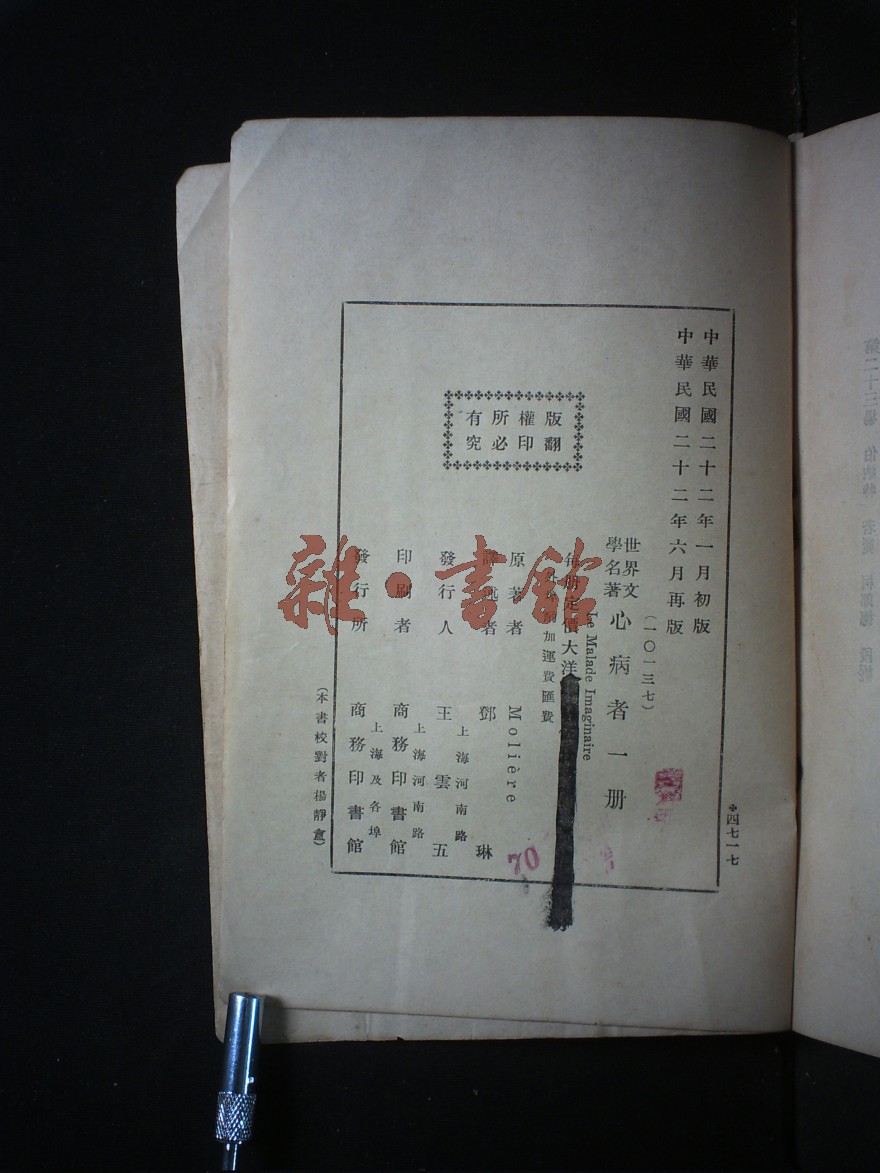 中華民國二十二年一月初版
中華民國二十二年六月再版
❖四七一七
(一〇一三七)
世界文學名著 心病者一册
Le Malade Imaginaire
每册定價大洋
加運費匯費
原著者 Molière
譯述者 鄧琳
發行人 王雲五
上海河南路
印刷者 商務印書館
上海河南路
發行所 商務印書館
上海及各埠
版權所有
翻印必究
(本書校對者楊靜盦)
70
雜·書館